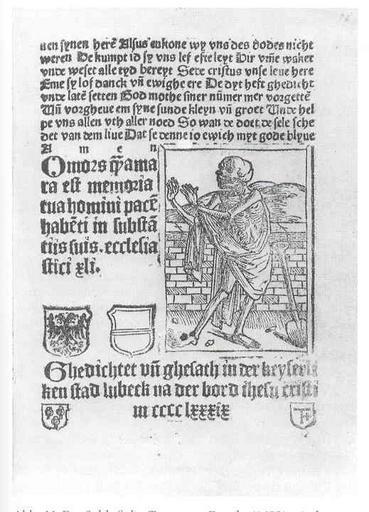 uen synen herē Alsus enkone wy vns des dodes nicht
weren De kumpt id sy vns lef efte leyt Hir vm̄e waket
vnde weset alle tyd bereyt Sete cristus vnse leue here
Eme sy lof danck vn̄ ewighe ere De dyt heft ghedicht
vnde latē setten God mothe siner nūmer mer vorgettē
Vn̄ vorgheue em syne sunde kleyn vn̄ grot Vnde hel
pe vns allen vth aller noed So wan de doet de sele sche
det van dem liue Dat se denne io ewich myt gode blyue
A m e n
O mors q̄ȝ ama
ra est memoria
tua homini pacē
habēti in substā
tijs suis. ecclesia
stici xli.
Ghedichtet vn̄ ghesath in der keyserli
ken stad lubeck na der bord ihesu cristi
m cccc lxxxix